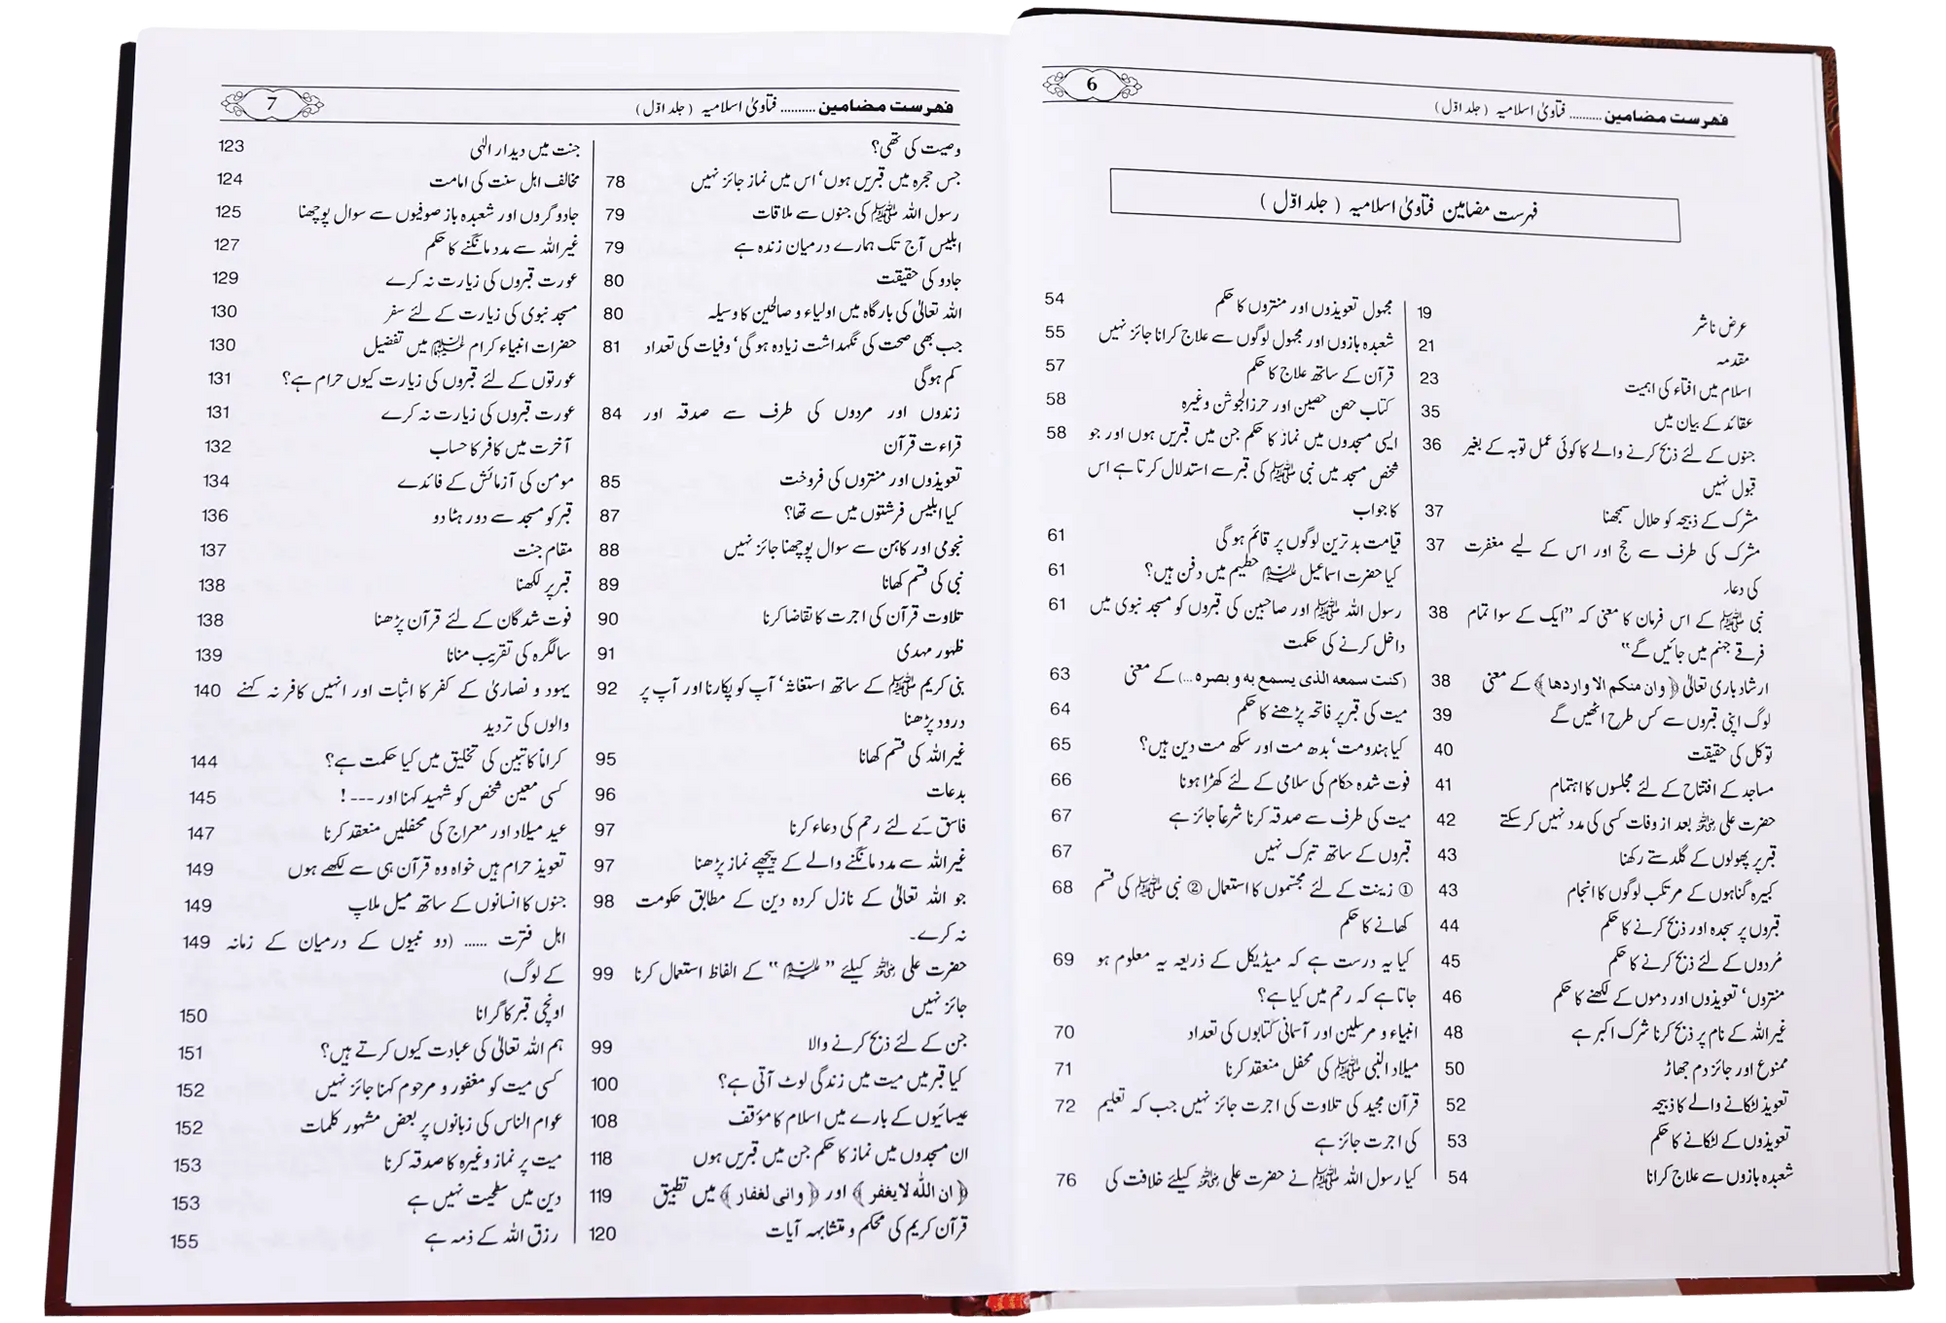 فہرست مضامین ......... فتاویٰ اسلامیہ (جلد اوّل) 6
فہرست مضامین فتاویٰ اسلامیہ (جلد اوّل)
عرض ناشر 19
مقدمہ 21
اسلام میں افتاء کی اہمیت 23
عقائد کے بیان میں 35
جنوں کے لئے ذبح کرنے والے کا کوئی عمل توبہ کے بغیر 36
قبول نہیں
مشرک کے ذبیحہ کو حلال سمجھنا 37
مشرک کی طرف سے حج اور اس کے لیے مغفرت 37
کی دعاء
نبی ﷺ کے اس فرمان کا معنی کہ ”ایک کے سوا تمام 38
فرقے جہنم میں جائیں گے“
ارشاد باری تعالیٰ ﴿وان منکم الا واردھا﴾ کے معنی 38
لوگ اپنی قبروں سے کس طرح اٹھیں گے 39
توکل کی حقیقت 40
مساجد کے افتتاح کے لئے مجلسوں کا اہتمام 41
حضرت علی رضی اللہ عنہ بعد از وفات کسی کی مدد نہیں کر سکتے 42
قبر پر پھولوں کے گلدستے رکھنا 43
کبیرہ گناہوں کے مرتکب لوگوں کا انجام 43
قبروں پر سجدہ اور ذبح کرنے کا حکم 44
مُردوں کے لئے ذبح کرنے کا حکم 45
منتروں‘ تعویذوں اور دموں کے لکھنے کا حکم 46
غیر اللہ کے نام پر ذبح کرنا شرک اکبر ہے 48
ممنوع اور جائز دم جھاڑ 50
تعویذ لٹکانے والے کا ذبیحہ 52
تعویذوں کے لٹکانے کا حکم 53
شعبدہ بازوں سے علاج کرانا 54
مجہول تعویذوں اور منتروں کا حکم 54
شعبدہ بازوں اور مجہول لوگوں سے علاج کرانا جائز نہیں 55
قرآن کے ساتھ علاج کا حکم 57
کتاب حصن حصین اور حرز الجوشن وغیرہ 58
ایسی مسجدوں میں نماز کا حکم جن میں قبریں ہوں اور جو 58
شخص مسجد میں نبی ﷺ کی قبر سے استدلال کرتا ہے اس
کا جواب
قیامت بدترین لوگوں پر قائم ہوگی 61
کیا حضرت اسماعیل علیہ السلام حطیم میں دفن ہیں؟ 61
رسول اللہ ﷺ اور صاحبین کی قبروں کو مسجد نبوی میں 61
داخل کرنے کی حکمت
(کنت سمعه الذی یسمع به و بصره ...) کے معنی 63
میت کی قبر پر فاتحہ پڑھنے کا حکم 64
کیا ہندومت‘ بدھ مت اور سکھ مت دین ہیں؟ 65
فوت شدہ حکام کی سلامی کے لئے کھڑا ہونا 66
میت کی طرف سے صدقہ کرنا شرعاً جائز ہے 67
قبروں کے ساتھ تبرک نہیں 67
① زینت کے لئے مجسّموں کا استعمال ② نبی ﷺ کی قسم 68
کھانے کا حکم
کیا یہ درست ہے کہ میڈیکل کے ذریعہ یہ معلوم ہو 69
جاتا ہے کہ رحم میں کیا ہے؟
انبیاء و مرسلین اور آسمانی کتابوں کی تعداد 70
میلاد النبی ﷺ کی محفل منعقد کرنا 71
قرآن مجید کی تلاوت کی اجرت جائز نہیں جب کہ تعلیم 72
کی اجرت جائز ہے
کیا رسول اللہ ﷺ نے حضرت علی رضی اللہ عنہ کیلئے خلافت کی 76
فہرست مضامین .......... فتاویٰ اسلامیہ (جلد اوّل) 7
وصیت کی تھی؟
جس حجرہ میں قبریں ہوں‘ اس میں نماز جائز نہیں 78
رسول اللہ ﷺ کی جنوں سے ملاقات 79
ابلیس آج تک ہمارے درمیان زندہ ہے 79
جادو کی حقیقت 80
اللہ تعالیٰ کی بارگاہ میں اولیاء و صالحین کا وسیلہ 80
جب بھی صحت کی نگہداشت زیادہ ہوگی‘ وفیات کی تعداد 81
کم ہوگی
زندوں اور مردوں کی طرف سے صدقہ اور 84
قراءت قرآن
تعویذوں اور منتروں کی فروخت 85
کیا ابلیس فرشتوں میں سے تھا؟ 87
نجومی اور کاہن سے سوال پوچھنا جائز نہیں 88
نبی کی قسم کھانا 89
تلاوت قرآن کی اجرت کا تقاضا کرنا 90
ظہور مہدی 91
نبی کریم ﷺ کے ساتھ استغاثہ‘ آپ کو پکارنا اور آپ پر 92
درود پڑھنا
غیر اللہ کی قسم کھانا 95
بدعات 96
فاسق کے لئے رحم کی دعاء کرنا 97
غیر اللہ سے مدد مانگنے والے کے پیچھے نماز پڑھنا 97
جو اللہ تعالیٰ کے نازل کردہ دین کے مطابق حکومت 98
نہ کرے۔
حضرت علی رضی اللہ عنہ کیلئے ” علیہ السلام “ کے الفاظ استعمال کرنا 99
جائز نہیں
جن کے لئے ذبح کرنے والا 99
کیا قبر میں میت میں زندگی لوٹ آتی ہے؟ 100
عیسائیوں کے بارے میں اسلام کا مؤقف 108
ان مسجدوں میں نماز کا حکم جن میں قبریں ہوں 118
﴿ان اللّٰه لا یغفر﴾ اور ﴿وانی لغفار﴾ میں تطبیق 119
قرآن کریم کی محکم و متشابہہ آیات 120
جنت میں دیدار الٰہی 123
مخالف اہل سنت کی امامت 124
جادوگروں اور شعبدہ باز صوفیوں سے سوال پوچھنا 125
غیر اللہ سے مدد مانگنے کا حکم 127
عورت قبروں کی زیارت نہ کرے 129
مسجد نبوی کی زیارت کے لئے سفر 130
حضرات انبیاء کرام علیہم السلام میں تفضیل 130
عورتوں کے لئے قبروں کی زیارت کیوں حرام ہے؟ 131
عورت قبروں کی زیارت نہ کرے 131
آخرت میں کافر کا حساب 132
مومن کی آزمائش کے فائدے 134
قبر کو مسجد سے دور ہٹا دو 136
مقام جنت 137
قبر پر لکھنا 138
فوت شدگان کے لئے قرآن پڑھنا 138
سالگرہ کی تقریب منانا 139
یہود و نصاریٰ کے کفر کا اثبات اور انہیں کافر نہ کہنے 140
والوں کی تردید
کراماً کاتبین کی تخلیق میں کیا حکمت ہے؟ 144
کسی معین شخص کو شہید کہنا اور ---! 145
عید میلاد اور معراج کی محفلیں منعقد کرنا 147
تعویذ حرام ہیں خواہ وہ قرآن ہی سے لکھے ہوں 149
جنوں کا انسانوں کے ساتھ میل ملاپ 149
اہل فترت ...... (دو نبیوں کے درمیان کے زمانہ 149
کے لوگ)
اونچی قبر کا گرانا 150
ہم اللہ تعالیٰ کی عبادت کیوں کرتے ہیں؟ 151
کسی میت کو مغفور و مرحوم کہنا جائز نہیں 152
عوام الناس کی زبانوں پر بعض مشہور کلمات 152
میت پر نماز وغیرہ کا صدقہ کرنا 153
دین میں سطحیت نہیں ہے 153
رزق اللہ کے ذمہ ہے 155